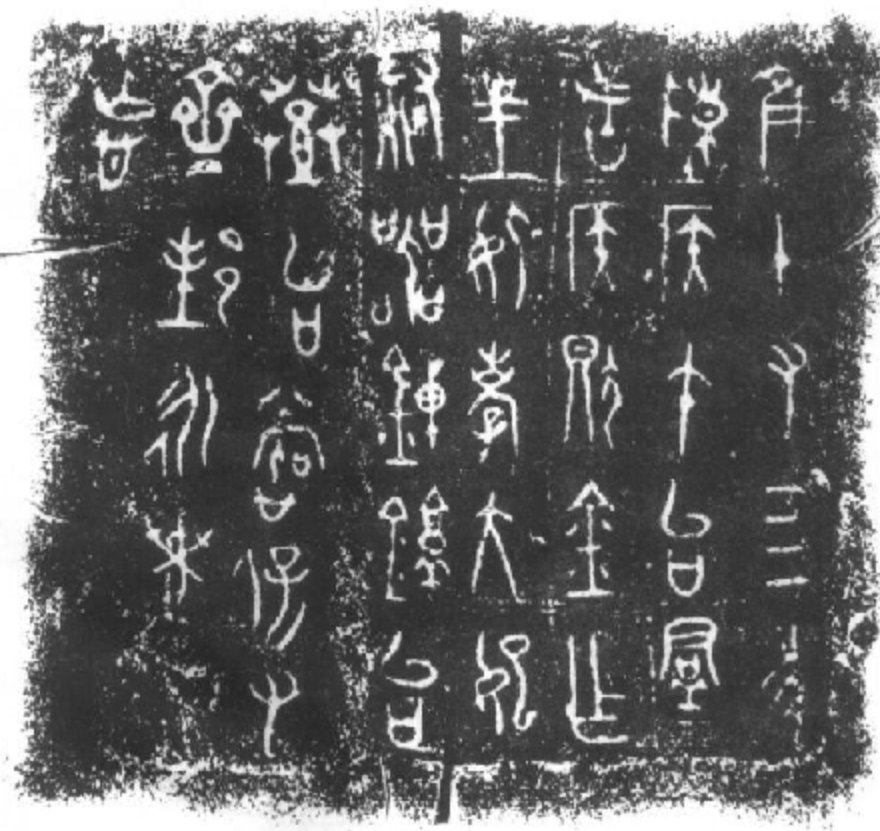 隹十又四年
陳侯午台群
者侯獻金乍
皇妣孝大妃
祭器鎛錞台
登台嘗保又
齊邦永枼毋
忘